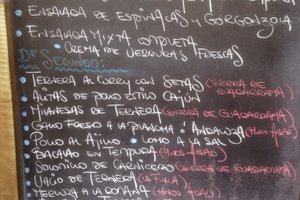 ENSALADA DE ESPINACAS Y GORGONZOLA
ENSALADA MIXTA COMPLETA
CREMA DE VERDURAS FRESCAS
DE SEGUNDO:
TERNERA AL CURRY CON SETAS (SIERRA DE GUADARRAMA)
ALITAS DE POLLO ESTILO CAJÚN
MILANESAS DE TERNERA (SIERRA DE GUADARRAMA)
GALLO FRESO A LA PLANCHA O ANDALUZA
POLLO AL AJILLO LOMO A LA SAL
BACALAO EN TEMPURA
SOLOMILLO DE CARNICERO (SIERRA DE GUADARRAMA)
DE TERNERA
MERLUZA A LA ROMANA